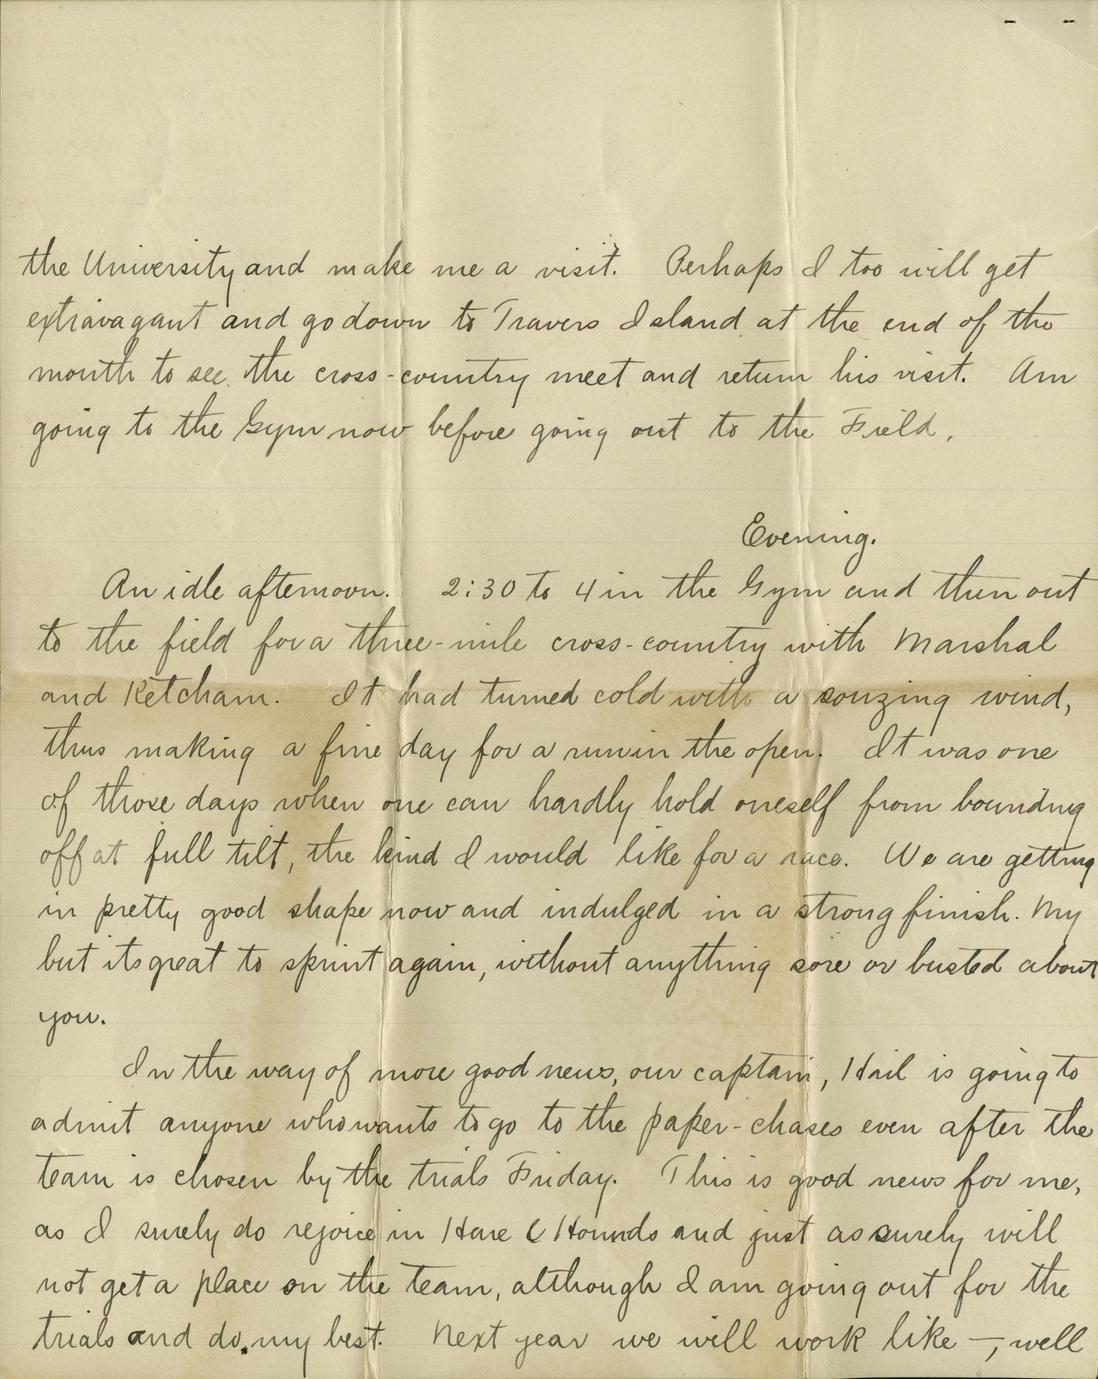 the University and make me a visit. Perhaps I too will get
extravagant and go down to Travers Island at the end of the
month to see the cross-country meet and return his visit. Am
going to the Gym now before going out to the Field.
Evening.
An idle afternoon. 2:30 to 4 in the Gym and then out
to the field for a three-mile cross-country with Marshal
and Ketcham. It had turned cold with a wind,
thus making a fine day for a run in the open. It was one
of those days when one can hardly hold oneself from bounding
off at full tilt, the kind I would like for a race. We are getting
in pretty good shape now and indulged in a strong finish. My
but its great to sprint again, without anything sore or busted about
you.
In the way of more good news, our captain, Hail is going to
admit anyone who wants to go to the paper-chases even after the
team is chosen by the trials Friday. This is good news for me,
as I surely do rejoice in Hare & Hounds and just as surely will
not get a place on the team, although I am going out for the
trials and do my best. Next year we will work like —, well